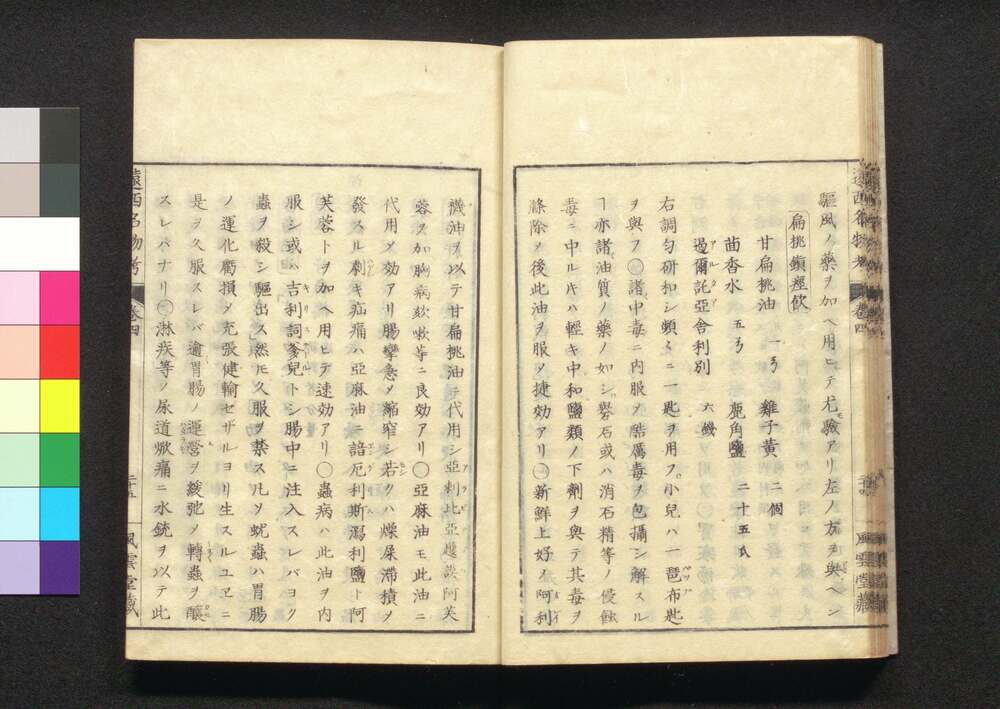 驅風ノ藥ヲ加ヘ用ヒテ尤驗アリ左ノ方ヲ與ヘシ
扁桃鎮痙飲
甘扁桃油 一ゟ 雞子黃 二個
茴香水 五ゟ 鹿角鹽 二十五氏
亞爾託亞舍利別 六錢
右調匀研和シ頻々ニ一匙ヲ用フ小兒ハ一琶布匙
ヲ與フ○諸中毒ニ内服ノ酷厲毒ヲ包攝シ解スル
ヿ亦諸油質ノ藥ノ如シ礜石或ハ消石精等ノ侵蝕
毒ニ中ルキハ輕キ中和鹽類ノ下劑ヲ與テ其毒ヲ
滌除メ後此油ヲ服メ捷効アリ○新鮮上好ノ阿利
襪油ヲ以テ甘扁桃油ニ代用シ亞刺比亞護謨阿芙
蓉ヲ加胸病欬嗽等ニ良効アリ○亞麻油モ此油ニ
代用メ効アリ腸攣急メ縮窄シ若クハ燥屎滯積メ
發スル劇キ疝痛ハ亞麻油ニ諳厄利斯瀉利鹽ト阿
芙蓉トヲ加ヘ用ヒテ速効アリ○蟲病ハ此油ヲ内
服シ或ハ吉利詞爹兒トシ腸中ニ注入スレバヨク
蟲ヲ殺シ驅出ス然モ久服ヲ禁ス凡ソ蚘蟲ハ胃腸
ノ運化虧損メ充張健輸セザルヨリ生スルユヱニ
是ヲ久服スレバ逾胃腸ノ運營ヲ緩弛メ轉蟲ヲ釀
スレバナリ○淋疾等ノ尿道焮痛ニ水銃ヲ以テ此
遠西名物考 卷四 二十五 風雲堂藏